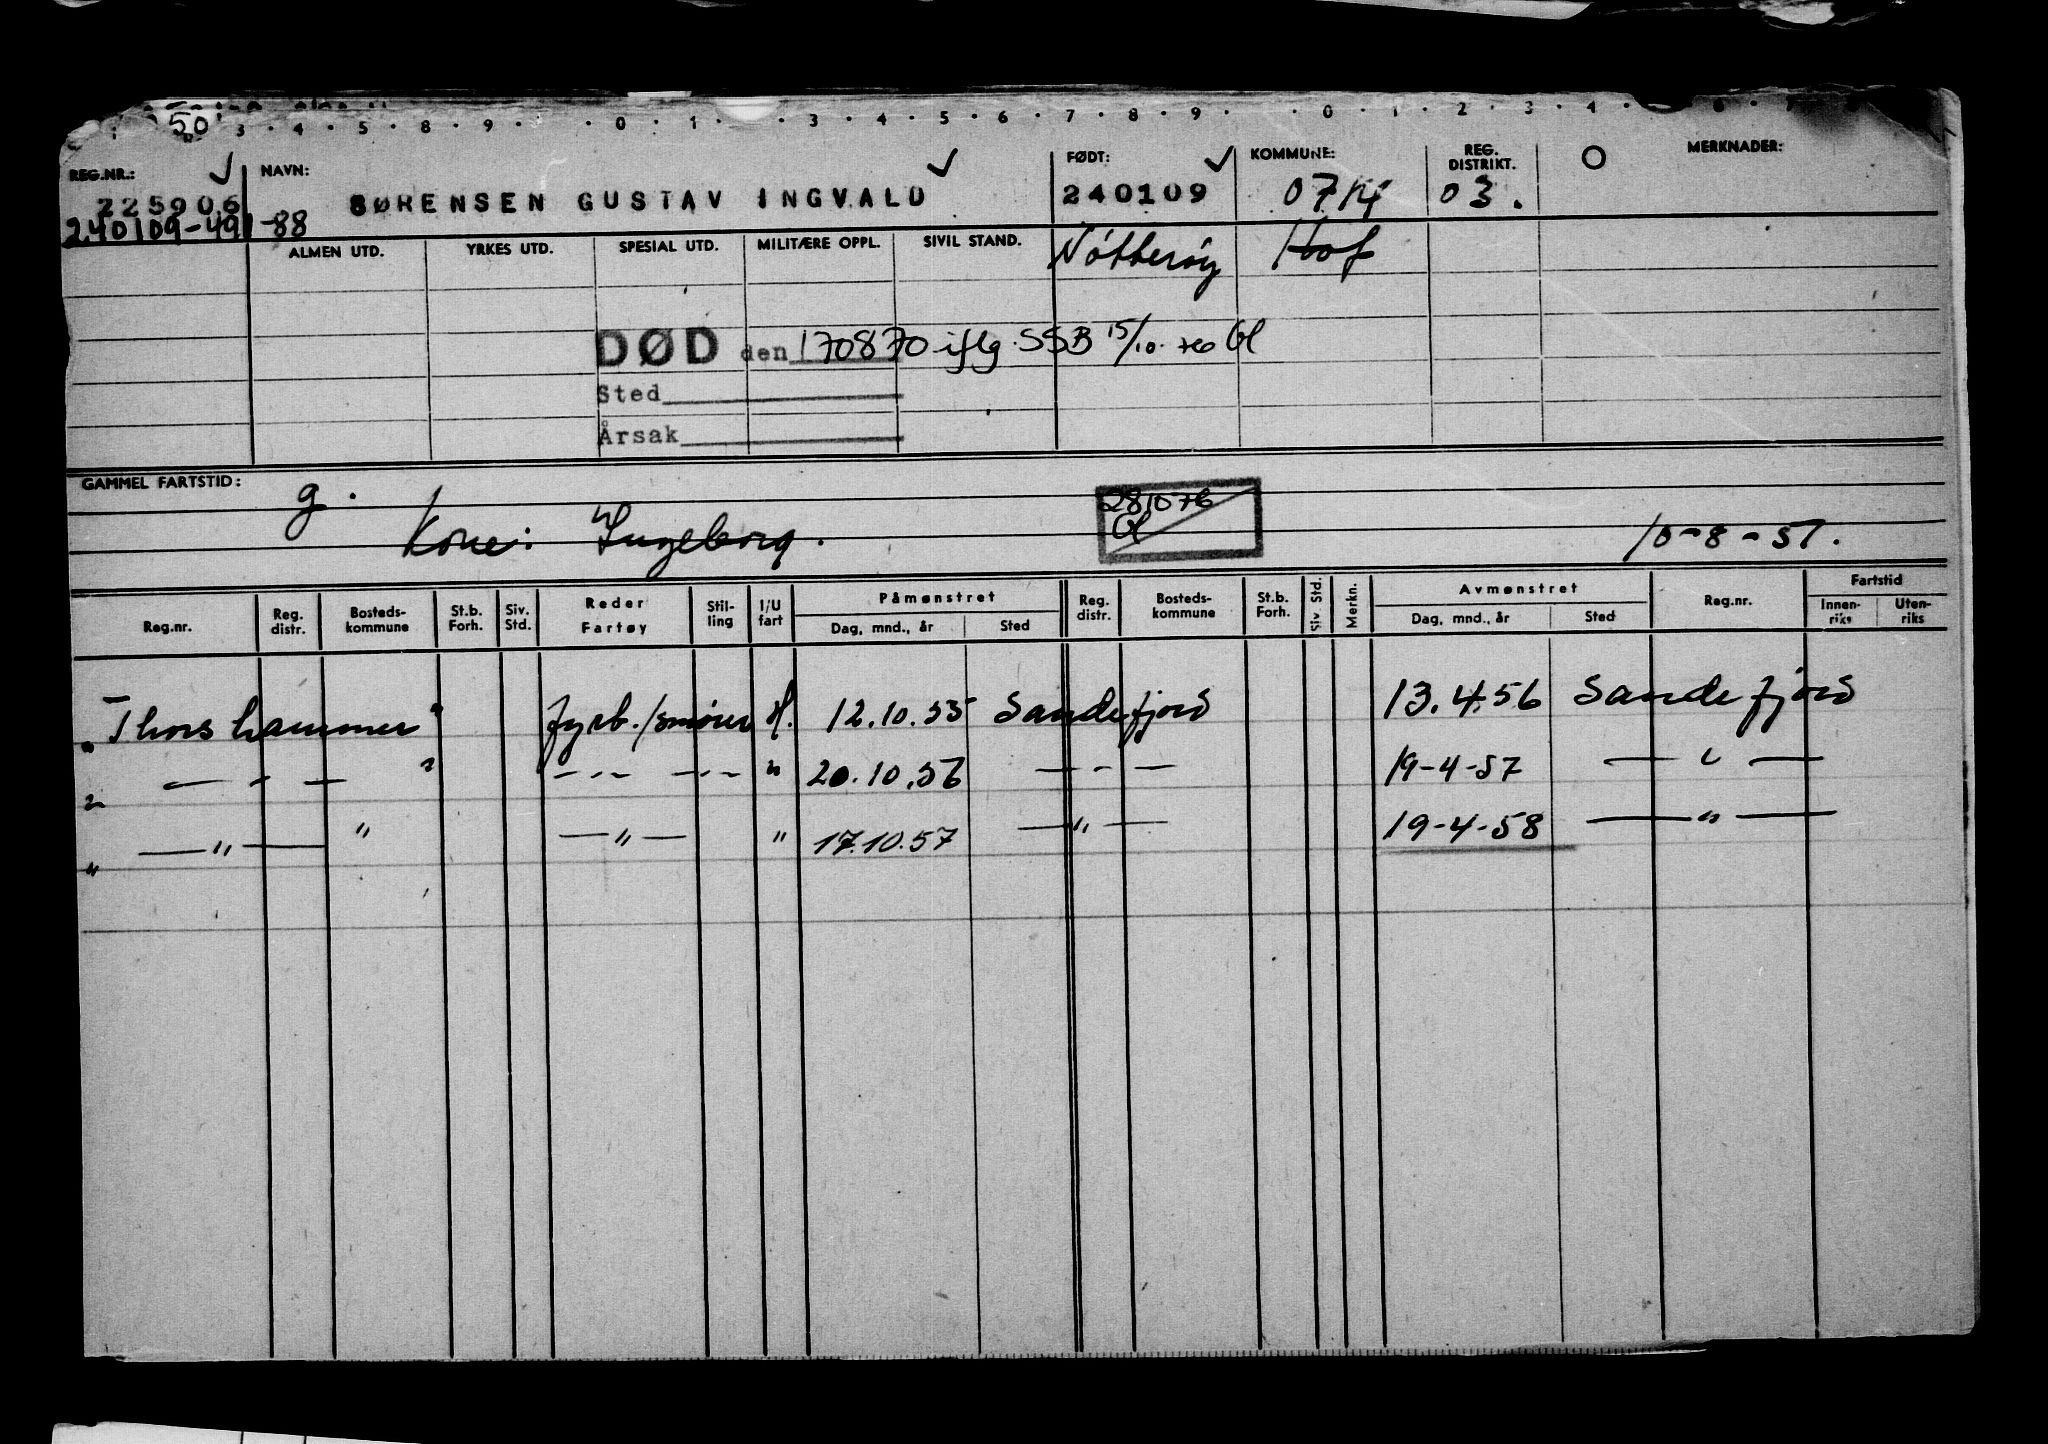 50
3 . 4 . 5 . 8 . 9 . . 0 . 1 . 3 . 4 . 5 . 6 . 7 . 8 . 9 . . 0 . 1 . 2 . 3 . 4 .
REG.NR.: NAVN: FØDT: KOMMUNE: REG. DISTRIKT. MERKNADER:
225906 SØRENSEN GUSTAV INGVALD 240109 0714 03. O
240109-491-88
ALMEN UTD. YRKES UTD. SPESIAL UTD. MILITÆRE OPPL. SIVIL STAND. Nötteröy Hof
DØD den 170870 iflg. SSB 15/10. 76 Gl
Sted
Årsak
GAMMEL FARTSTID: g.
281076
Gl
Kone: Ingeborg. 10-8-57.
Reg.nr. Reg. distr. Bosteds- kommune St.b. Forh. Siv. Std. Reder Fartøy Stil- ling I/U fart Påmønstret Dag, mnd., år Sted Reg. distr. Bosteds- kommune St.b. Forh. Siv. Std. Merkn. Avmønstret Dag, mnd., år Sted Reg.nr. Fartstid Innen- riks Uten- riks
"Thorshammer" fyrb./smører H. 12.10.55 Sandefjord 13.4.56 Sandefjord
" — - — " — - — " 20.10.56 — - — 19-4-57 — " —
" — " — " — " — " 17.10.57 — " — 19-4-58 — " —